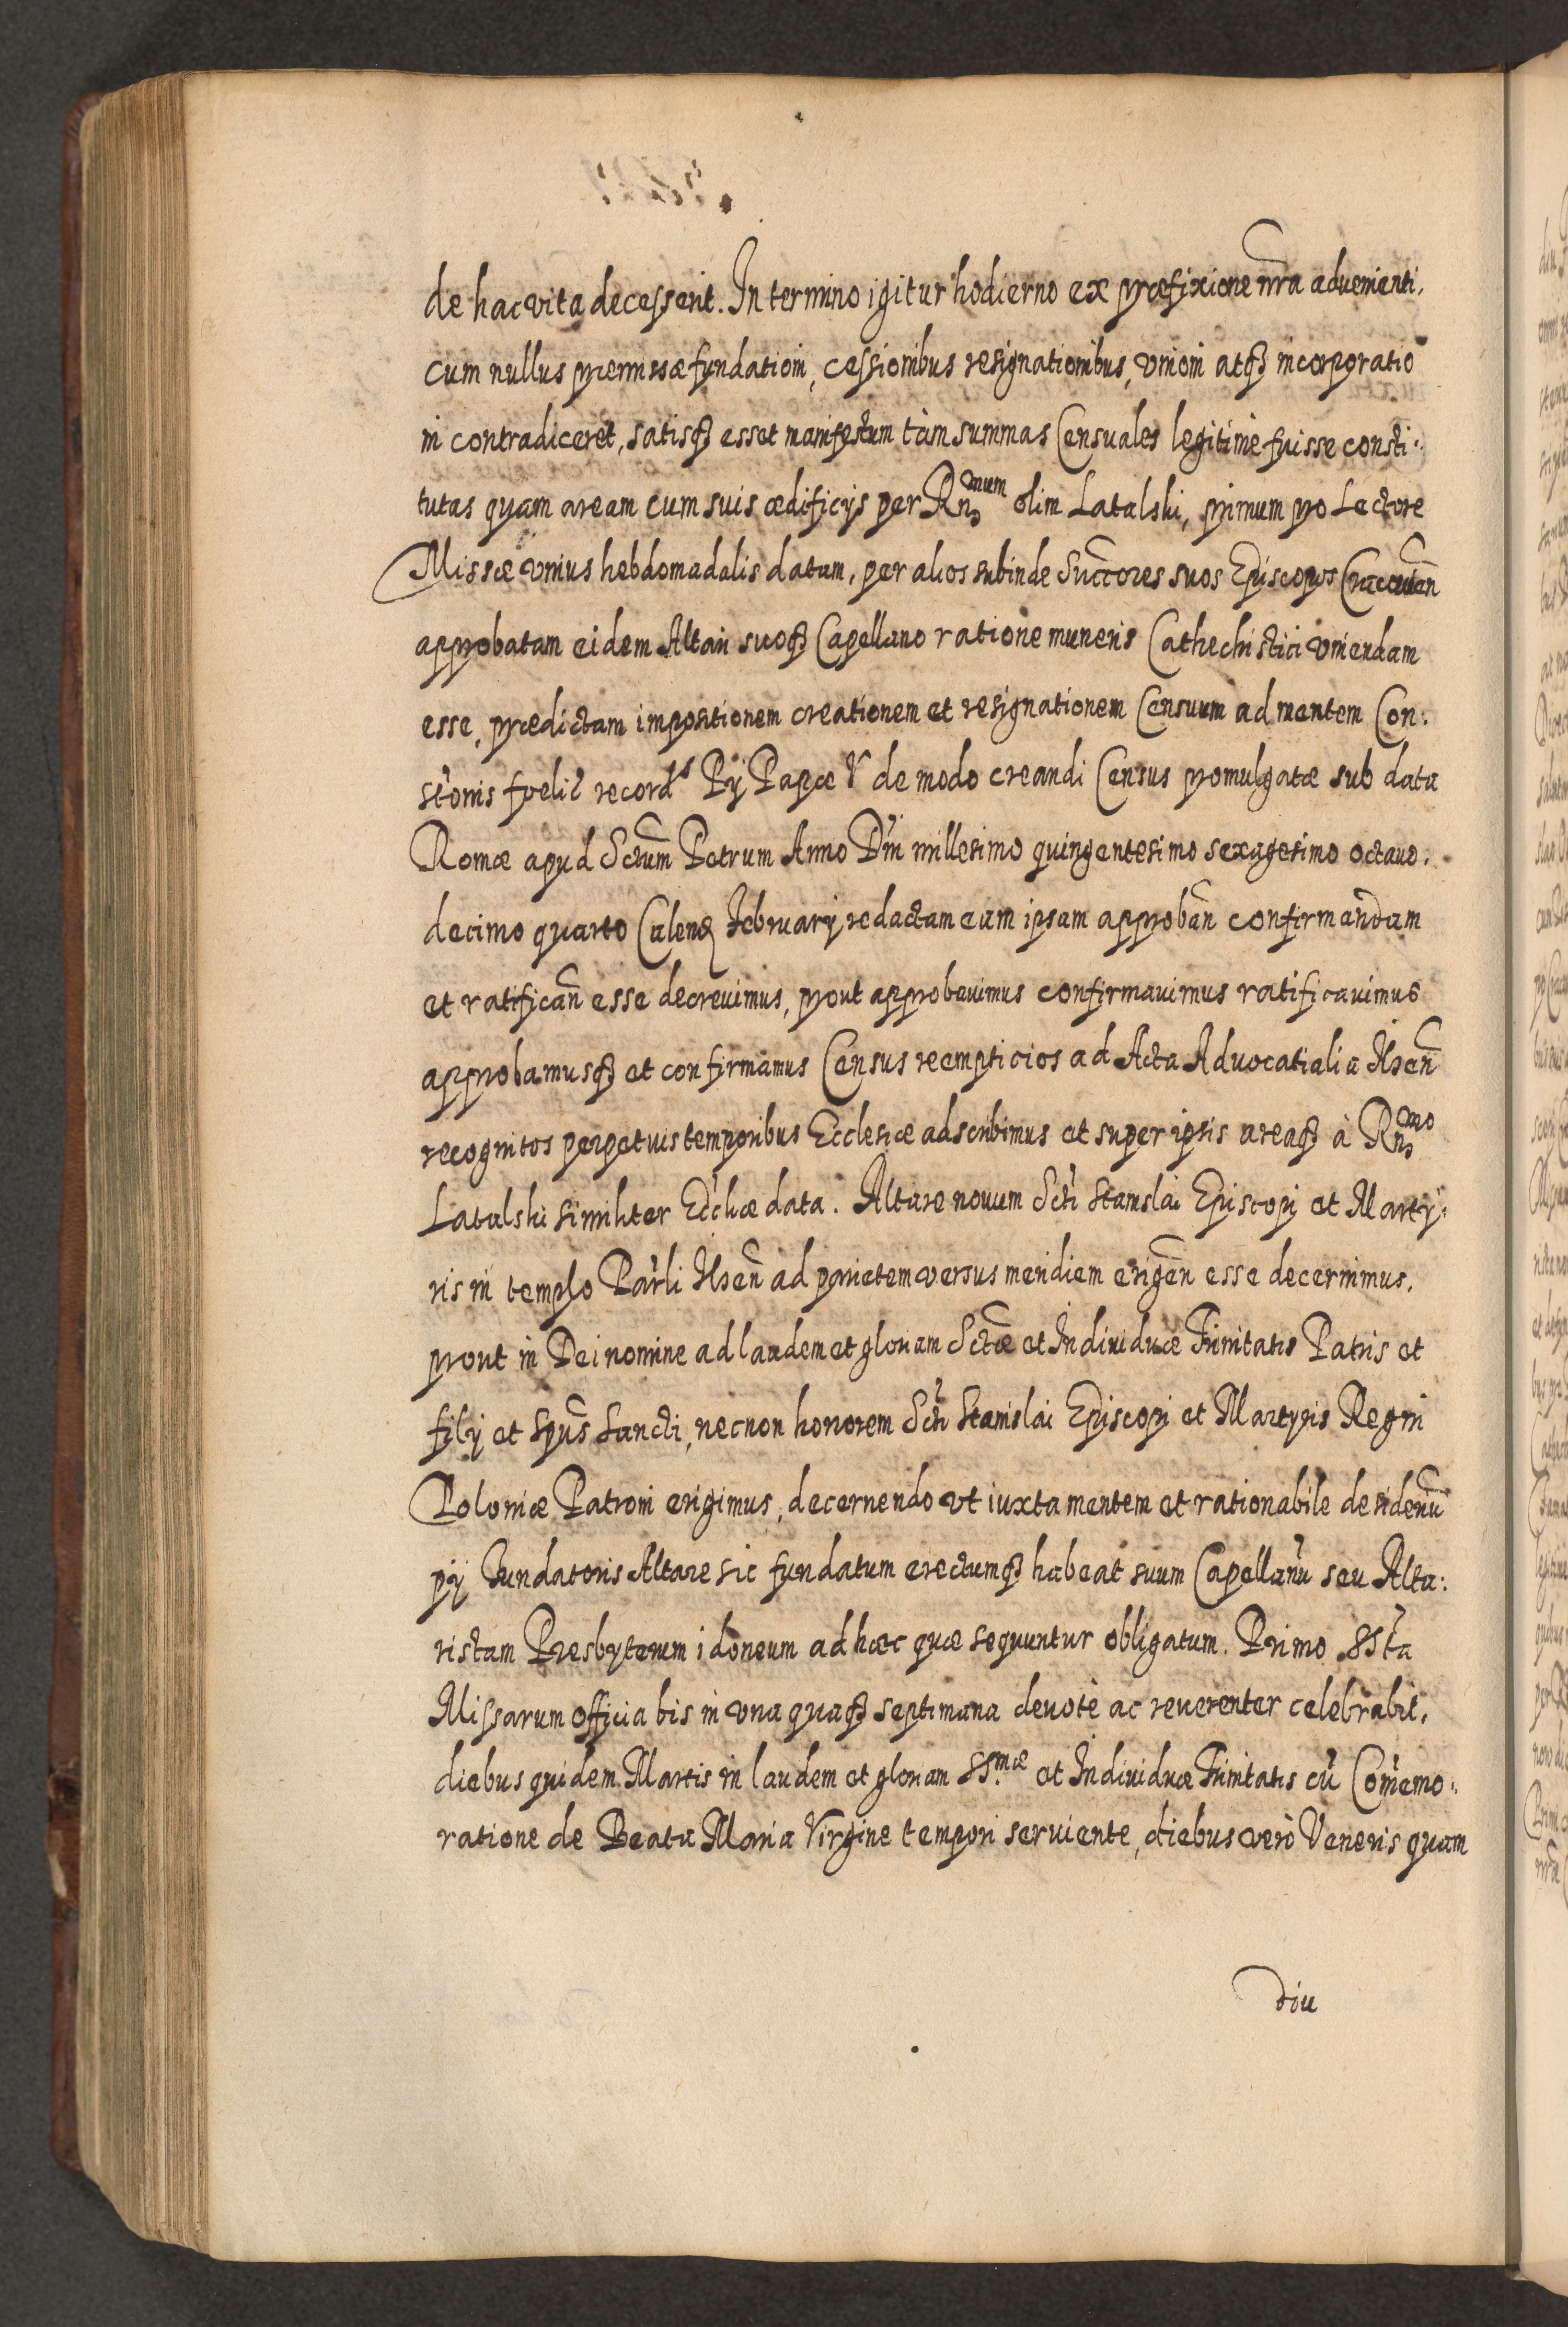 de hac vita decesserit. In termino igitur hodierno ex præfixione nr̃a aduenienti,
cum nullus præmissæ fundationi, cessionibus resignationibus, vnioni atq₃ incorporatio
ni contradiceret, satisq₃ esset manifestum tàm summas Censuales legitimè fuisse consti-
tutas quam aream cum suis ædificijs per Rn̄dmum olim Latalski, primum pro Lectore
Missæ vnius hebdomadalis datam, per alios subinde Succ̄ores suos Episcopos Cracouien̄
approbatam eidem Altari suoq₃ Capellano ratione muneris Cathechistici vniendam
esse, prædictam impositionem creationem et resignationem Censuum ad mentem Con-
st'onis fœlic record's Pij Papæ V de modo creandi Census promulgatæ sub data
Romæ apud Sctum̄ Petrum Anno Dn̄i millesimo quingentesimo sexagesimo octauo.
decimo quarto Calend Februarij redactam eam ipsam approban̄ confirmandam
et ratifican̄ esse decreuimus, prout approbauimus confirmauimus ratificauimus
approbamusq₃ et confirmamus Census reempticios ad Acta Aduocatialia Ilsen̄
recognitos perpetuis temporibus Ecclesiæ adscribimus et super ipsis areaq₃ à Rn̄dmo
Latalski similiter Ecc'liæ data. Altare nouum Scti Stanislai Episcopi et Marty-
ris in templo Par'li Ilsen̄ ad parietem versus meridiem erigen̄ esse decernimus.
prout in Dei nomine ad laudem et gloriam Sctæ et Indiuiduæ Trinitatis Patris et
filij et Spūs Sancti, necnon honorem Scti Stanislai Episcopi et Martyris Regni
Poloniæ Patroni erigimus, decernendo vt iuxta mentem et rationabile desideriū
pij Fundatoris Altare sic fundatum erectumq₃ habeat suum Capellanū seu Alta-
ristam Presbyterum idoneum ad hæc quæ sequuntur obligatum. Primo SSta
Missarum officia bis in vna quaq₃ septimana deuotè ac reuerenter celebrabit,
diebus quidem Martis in laudem et gloriam SS.mæ et Indiuiduæ Trinitatis cū Com̄emo-
ratione de Beata Maria Virgine tempori seruiente, diebus verò Veneris quam
diu